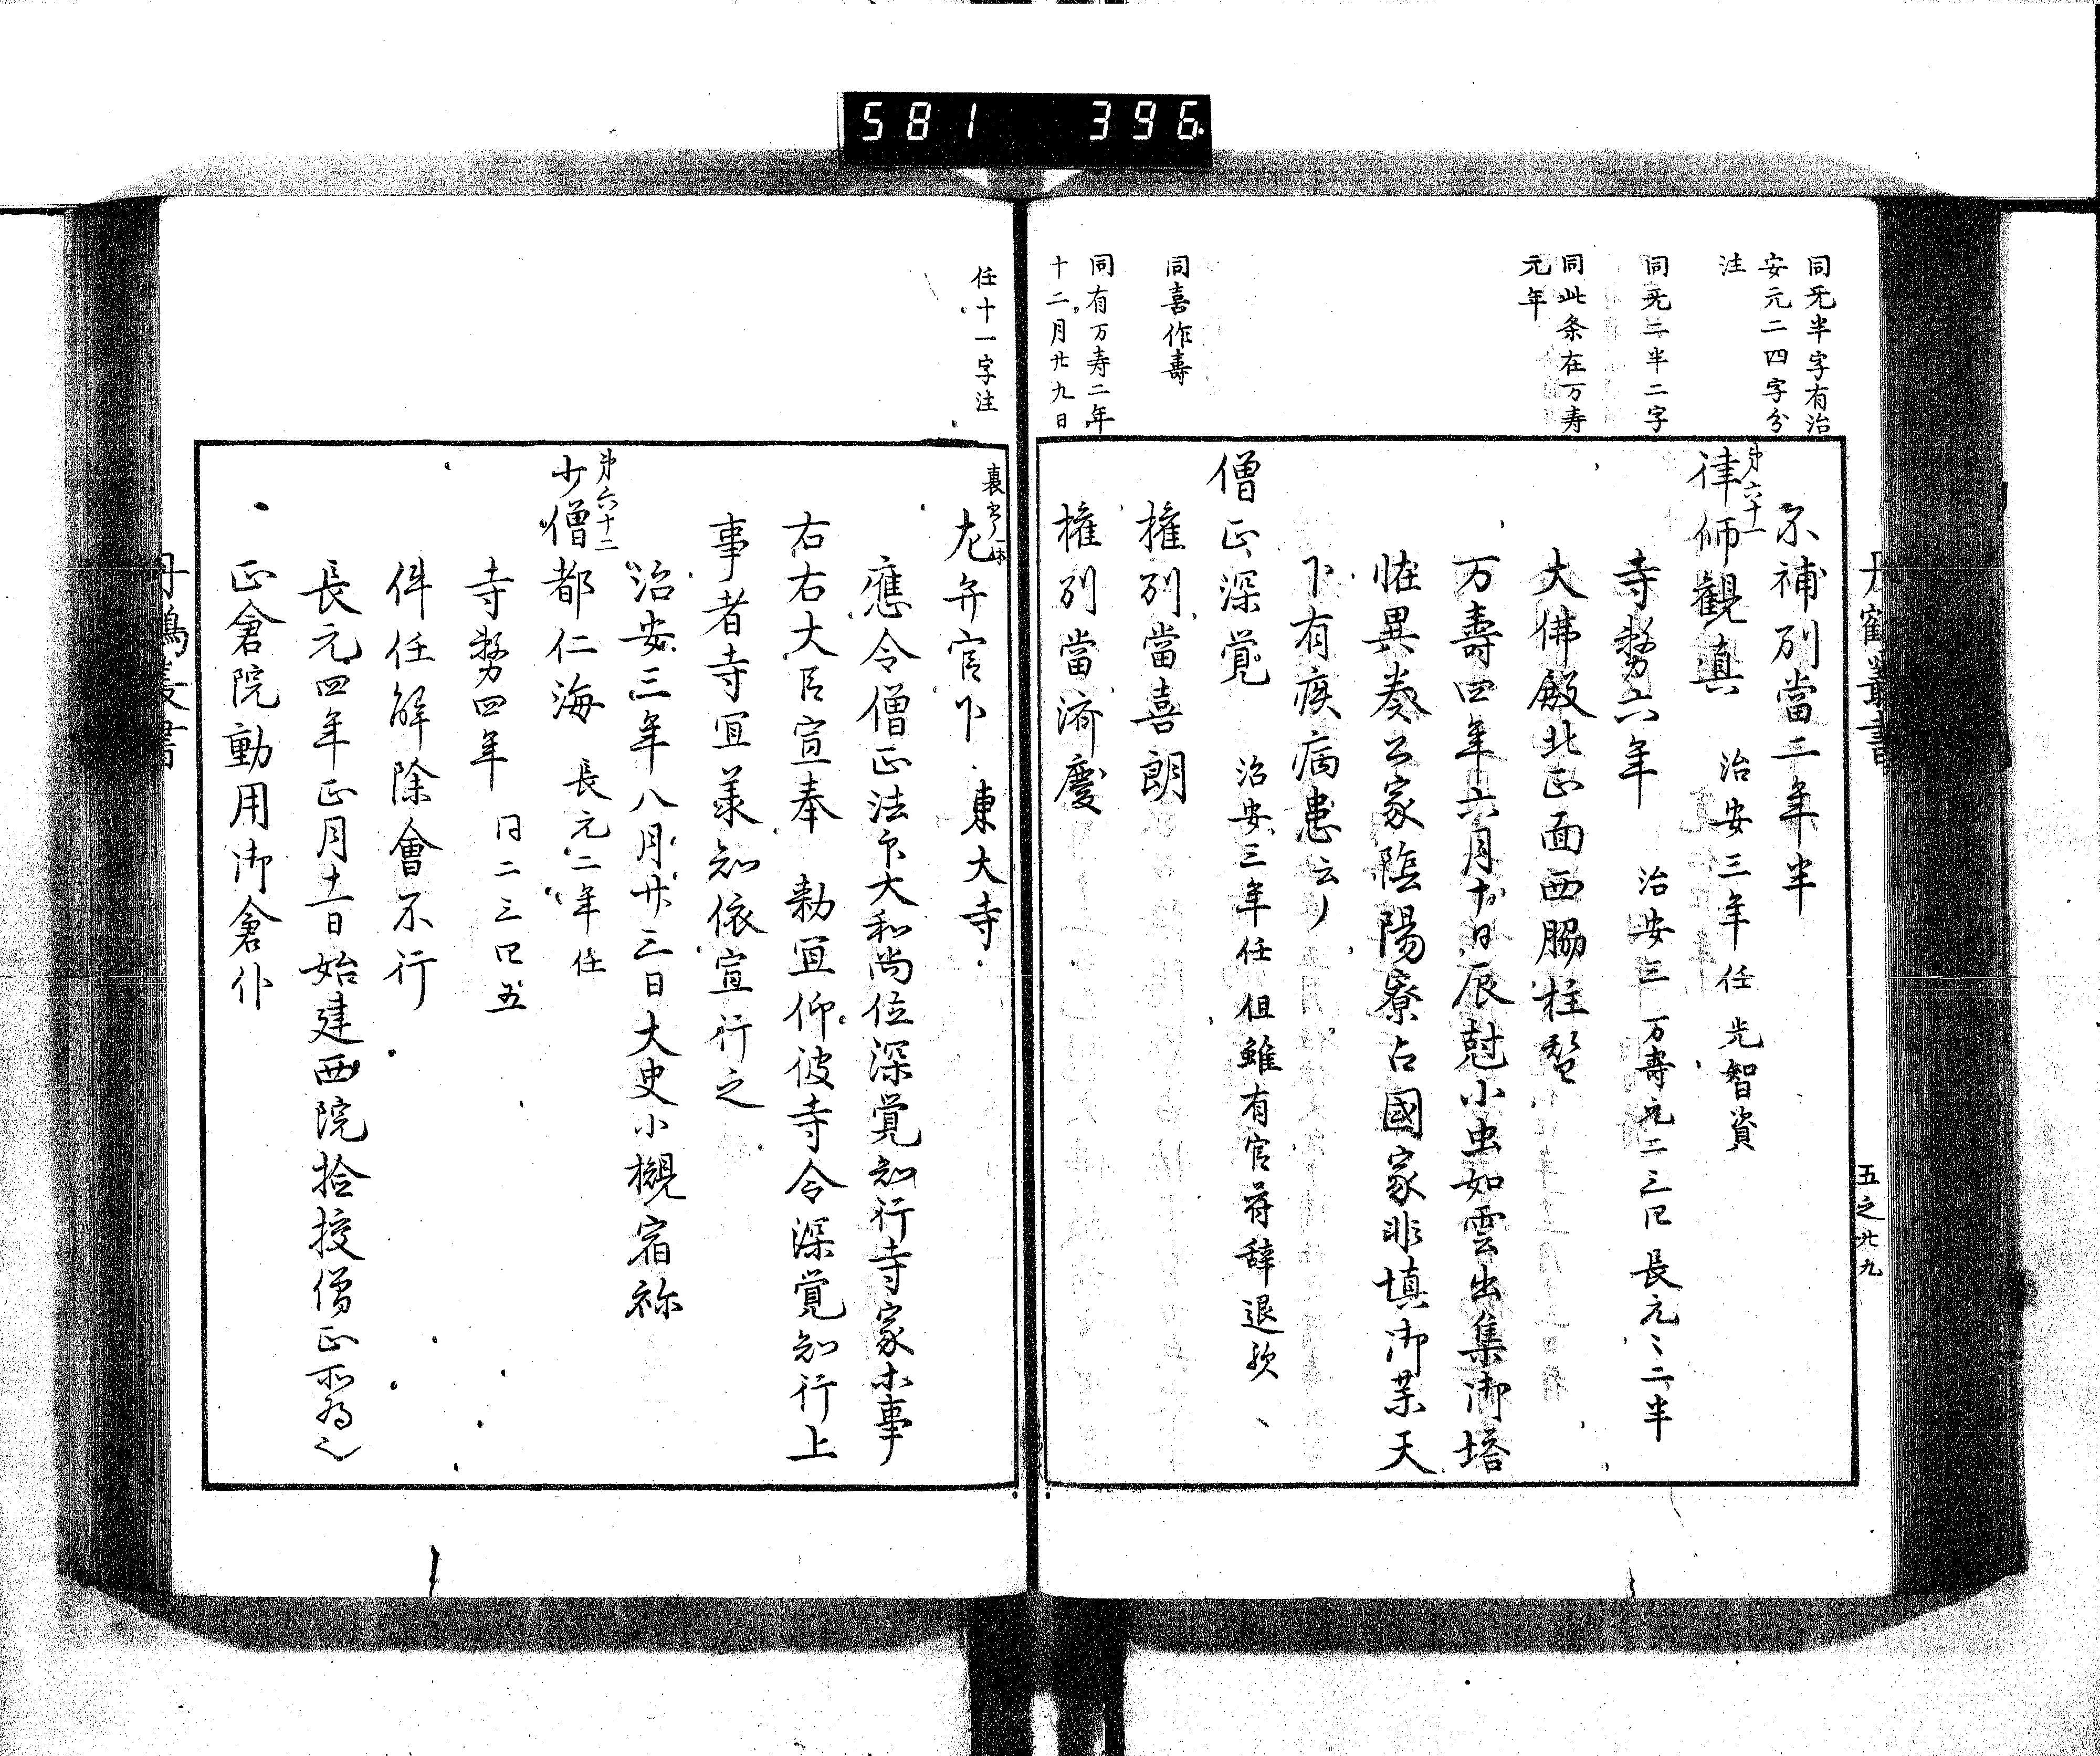 581 396
同无半字有治
安元二四字分
注
同无二半二字
同此条在万寿
元年
同喜作壽
同有万寿二年
十二月廿九日
五之廿九
不補別當二年半
第六十一
律師觀真 治安三年任 光智資
寺務六年 治安三 万壽元二三四 長元〻二半
大佛殿北正面西脇柱
万壽四年六月 日辰尅小虫如雲出集御塔
恠異奏公家陰陽寮占國家非填御某天
下有疾病患云〻
僧正深覚 治安三年任 但雖有官符辞退歟
權別當喜朗
權別當済慶
任十一字注
裏書一本
左弁官下 東大寺
應令僧正法印大和尚位深覚知行寺家木事
右右大臣宣奉 勅宜仰彼寺令深覚知行上
事者寺宜羕知依宣行之
治安三年八月廿三日大史小槻宿祢
第六十二
少僧都仁海 長元二年任
寺務四年 同二三四五
件任解除會不行
長元四年正月十一日始建西院捡挍僧正所為也
正倉院動用御倉仆
丹鶴叢書